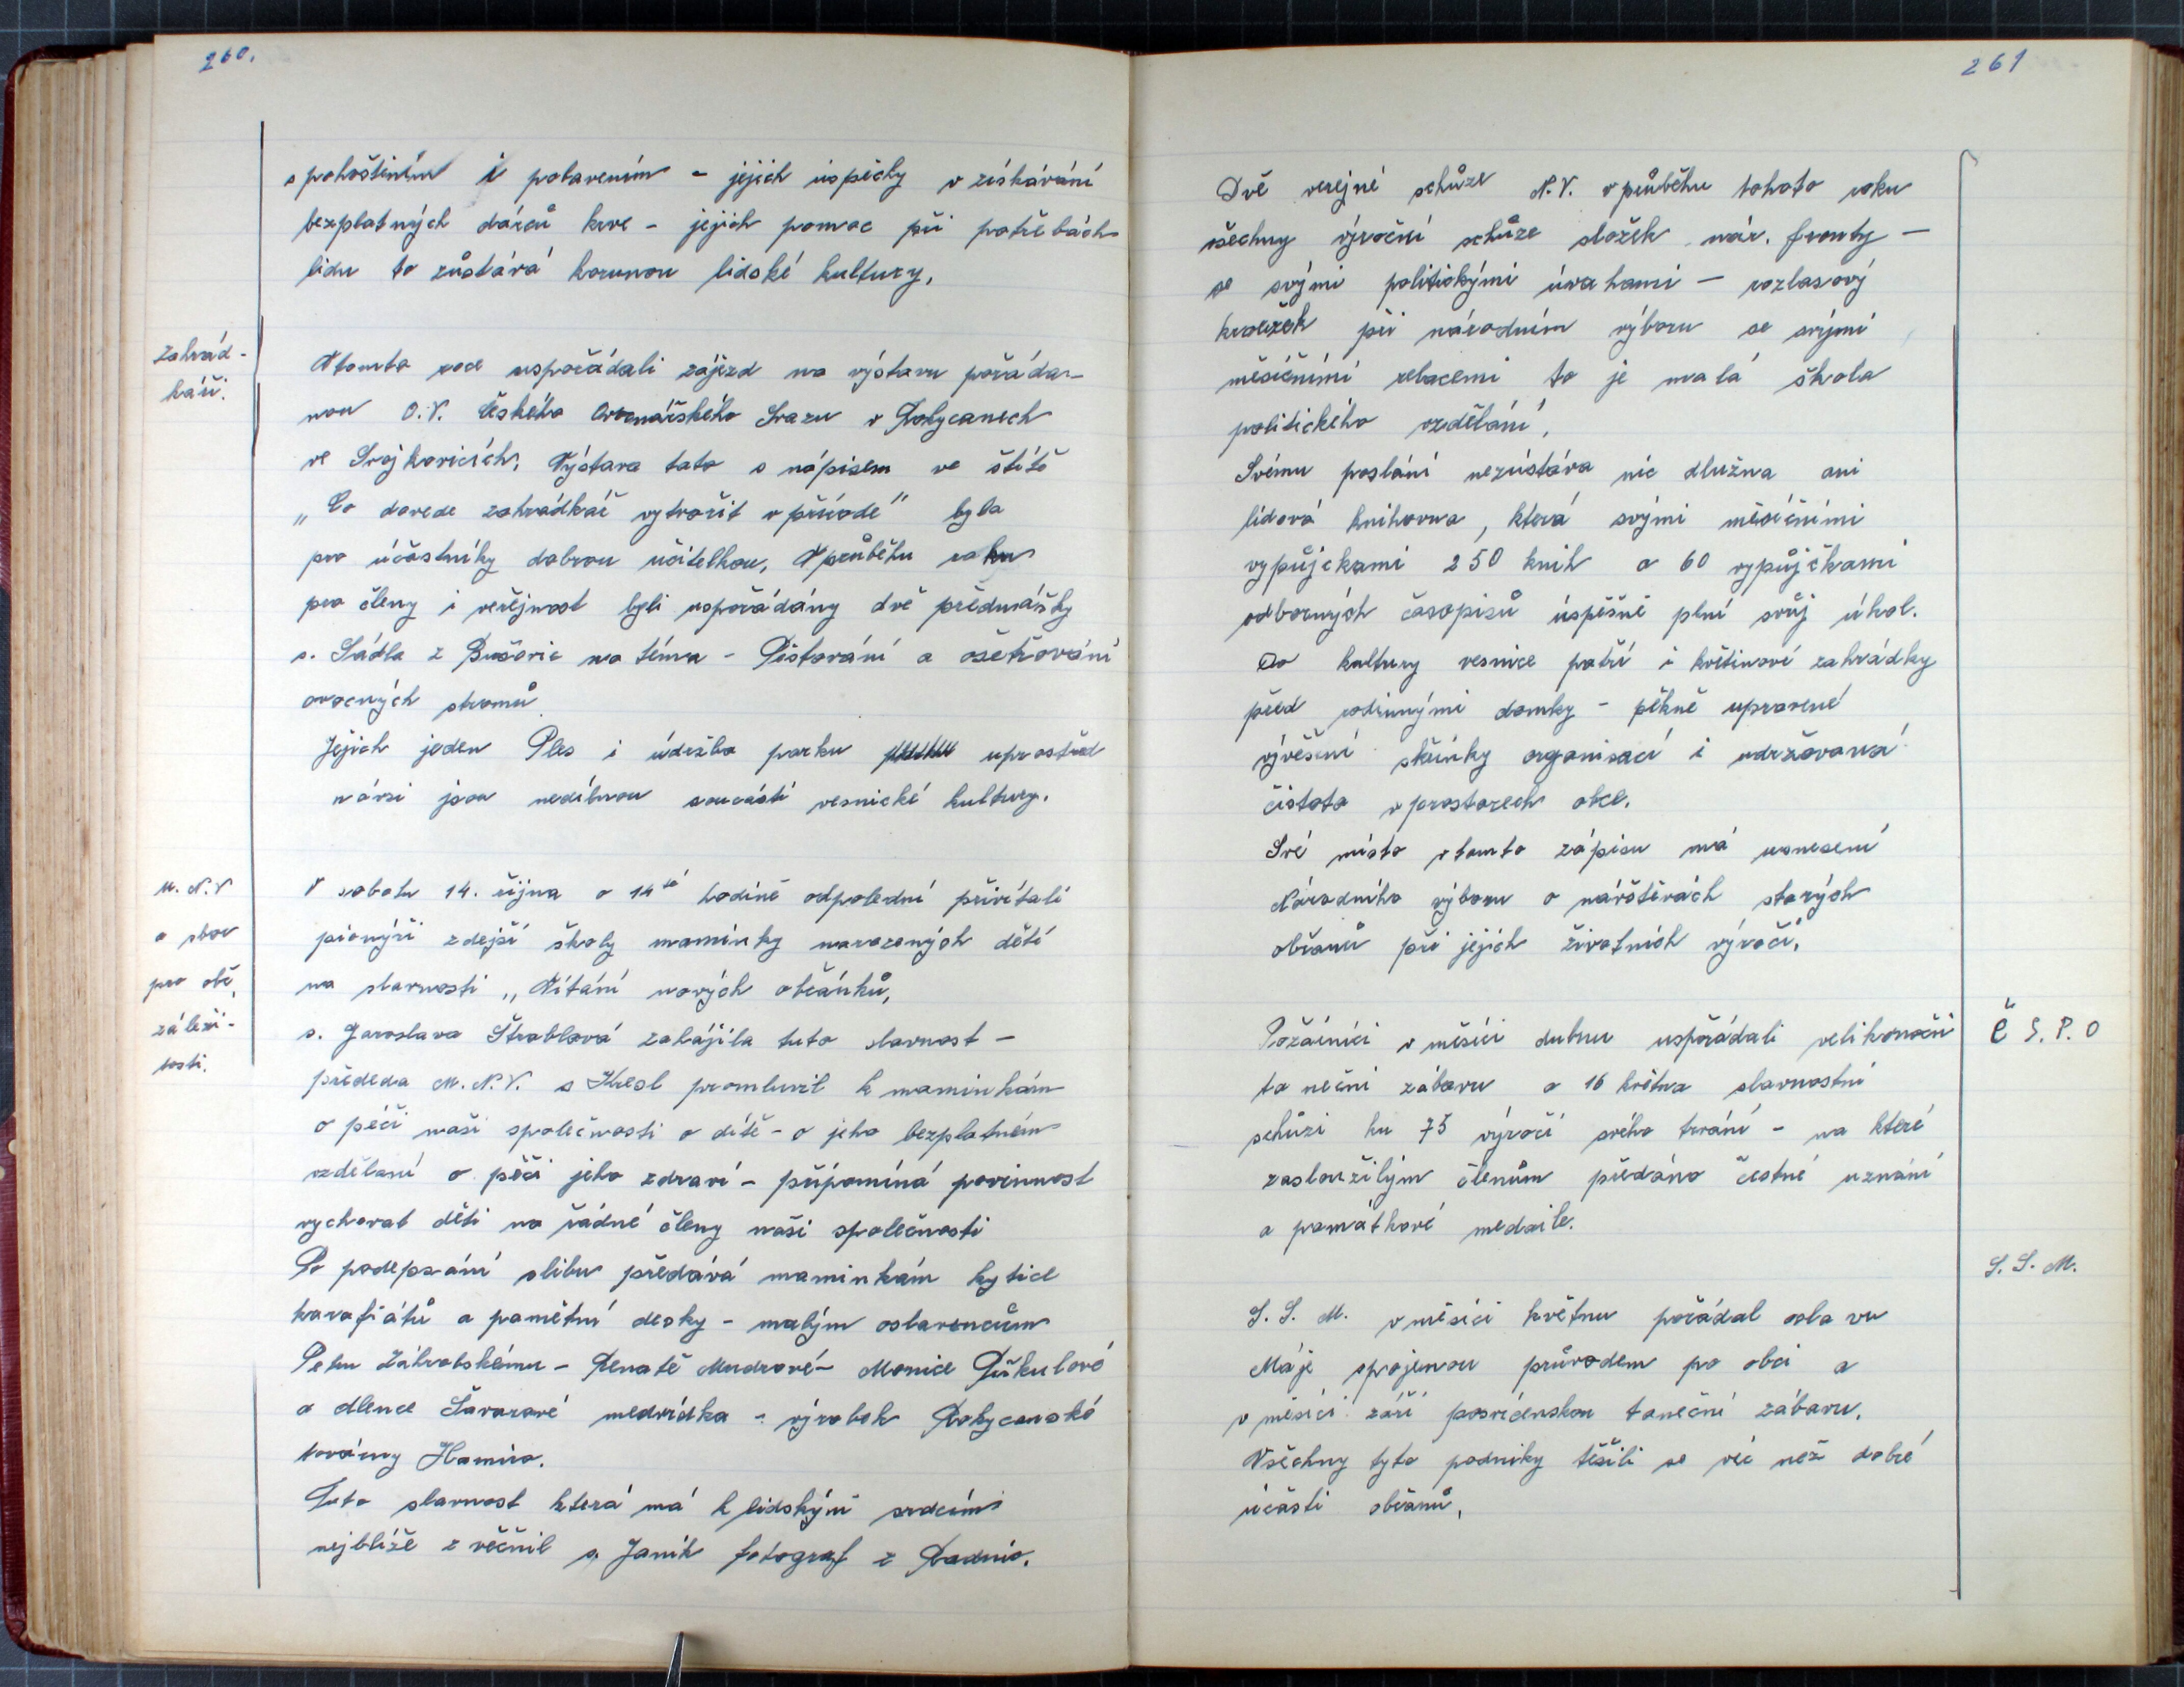 260.
s pohoštěním i pobavením - jejich úspěchy v získávání
bezplatných dárců krve - jejich pomoc při potřebách
lidu to zůstává korunou lidské kultury.
Zahrád-
káři.
V tomto roce uspořádali zájezd na výstavu pořáda-
nou O.V. Českého Ovocnářského Svazu v Rokycanech
ve Svojkovicích. Výstava tato s nápisem ve štítě
„Co dovede zahrádkář vytvořit v přírodě" byla
pro účastníky dobrou učitelkou. V průběhu roku
pro členy i veřejnost byli uspořádány dvě přednášky
s. Sádla z Bušovic na téma - Pěstování a ošetřování
ovocných stromů
Jejich jeden Ples i údržba parku uprostřed
návsi jsou nedílnou součástí vesnické kultury.
M. N. V
a sbor
pro obč.
záleži-
tosti.
V sobotu 14. října o 14té hodině odpolední přivítali
pionýři zdejší školy maminky narozených dětí
na slavnosti „Vítání nových občánků,
s. Jaroslava Štrablová zahájila tuto slavnost -
přededa M.N.V. s Kresl promluvil k maminkám
o péči naší společnosti o dítě - o jeho bezplatném
vzdělání o péči jeho zdraví - připomíná povinnost
vychovat děti na řádné členy naší společnosti
Po podepsání slibu předává maminkám kytice
karafiátů a pamětní desky - malým oslavencům
Petru Záhrobskému - Renatě Mudrové - Monice Piškulové
a Alence Šavarové medvídka - výrobek Rokycanské
továrny Hamiro.
Tuto slavnost která má k lidským srdcím
nejblíže zvěčnil s. Janík fotograf z Radnic.
261
Dvě veřejné schůze N.V. v průběhu tohoto roku
všechny výroční schůze složek nár. fronty -
se svými politickými úvahami - rozlasový
kroužek při národním výboru se svými
měsíčními relacemi to je malá škola
politického vzdělání,
Svému poslání nezůstáva nic dlužna ani
lidová knihovna, která svými měsíčními
vypůjckami 250 knih a 60 vypůjčkami
odborných časopisů úspěšně plní svůj úkol.
Do kultury vesnice patří i květinové zahrádky
před rodinnými domky - pěkně upravené
vývěšení skřínky organisací i udržovaná
čistota v prostorech obce.
Své místo v tomto zápisu má usnesení
Národního výboru o návštěvách starých
občanů při jejich životních výročí.
Č S. P. O
Požárníci v měsíci dubnu uspořádali velikonoční
taneční zábavu a 16 května slavnostní
schůzi ku 75 výročí svého trvání - na které
zasloužilým členům předáno čestné uznání
a památkové medaile.
S. S. M.
S. S. M. v měsíci květnu pořádal oslavu
Máje spojenou průvodem po obci a
v měsíci září posvícenskou taneční zábavu.
Všechny tyto podniky těšili se víc než dobré
účasti občanů,